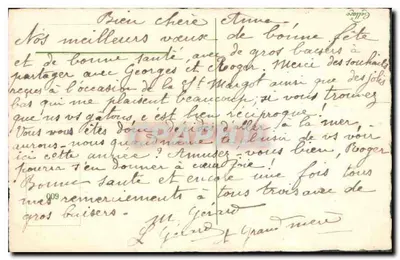 Bien chère Anna
Nos meilleurs vœux de bonne fête
et de bonne santé, avec de gros baisers à
partager avec Georges et Roger. Merci des souhaits
reçus à l'occasion de la St Margot ainsi que des jolis
bas qui me plaisent beaucoup, si vous trouvez
que ns vs gatons, c'est bien réciproque.
Vous vous êtes donc décidés d'aller à la mer,
aurons-nous également le plaisir de vs voir
ici cette année ? Amusez-vous bien, Roger
pourra s'en donner à cœur joie !
Bonne santé et encore une fois tous
mes remerciements à tous trois avec de
gros baisers.
M. Gérard
L Gérard & Grand mère
600